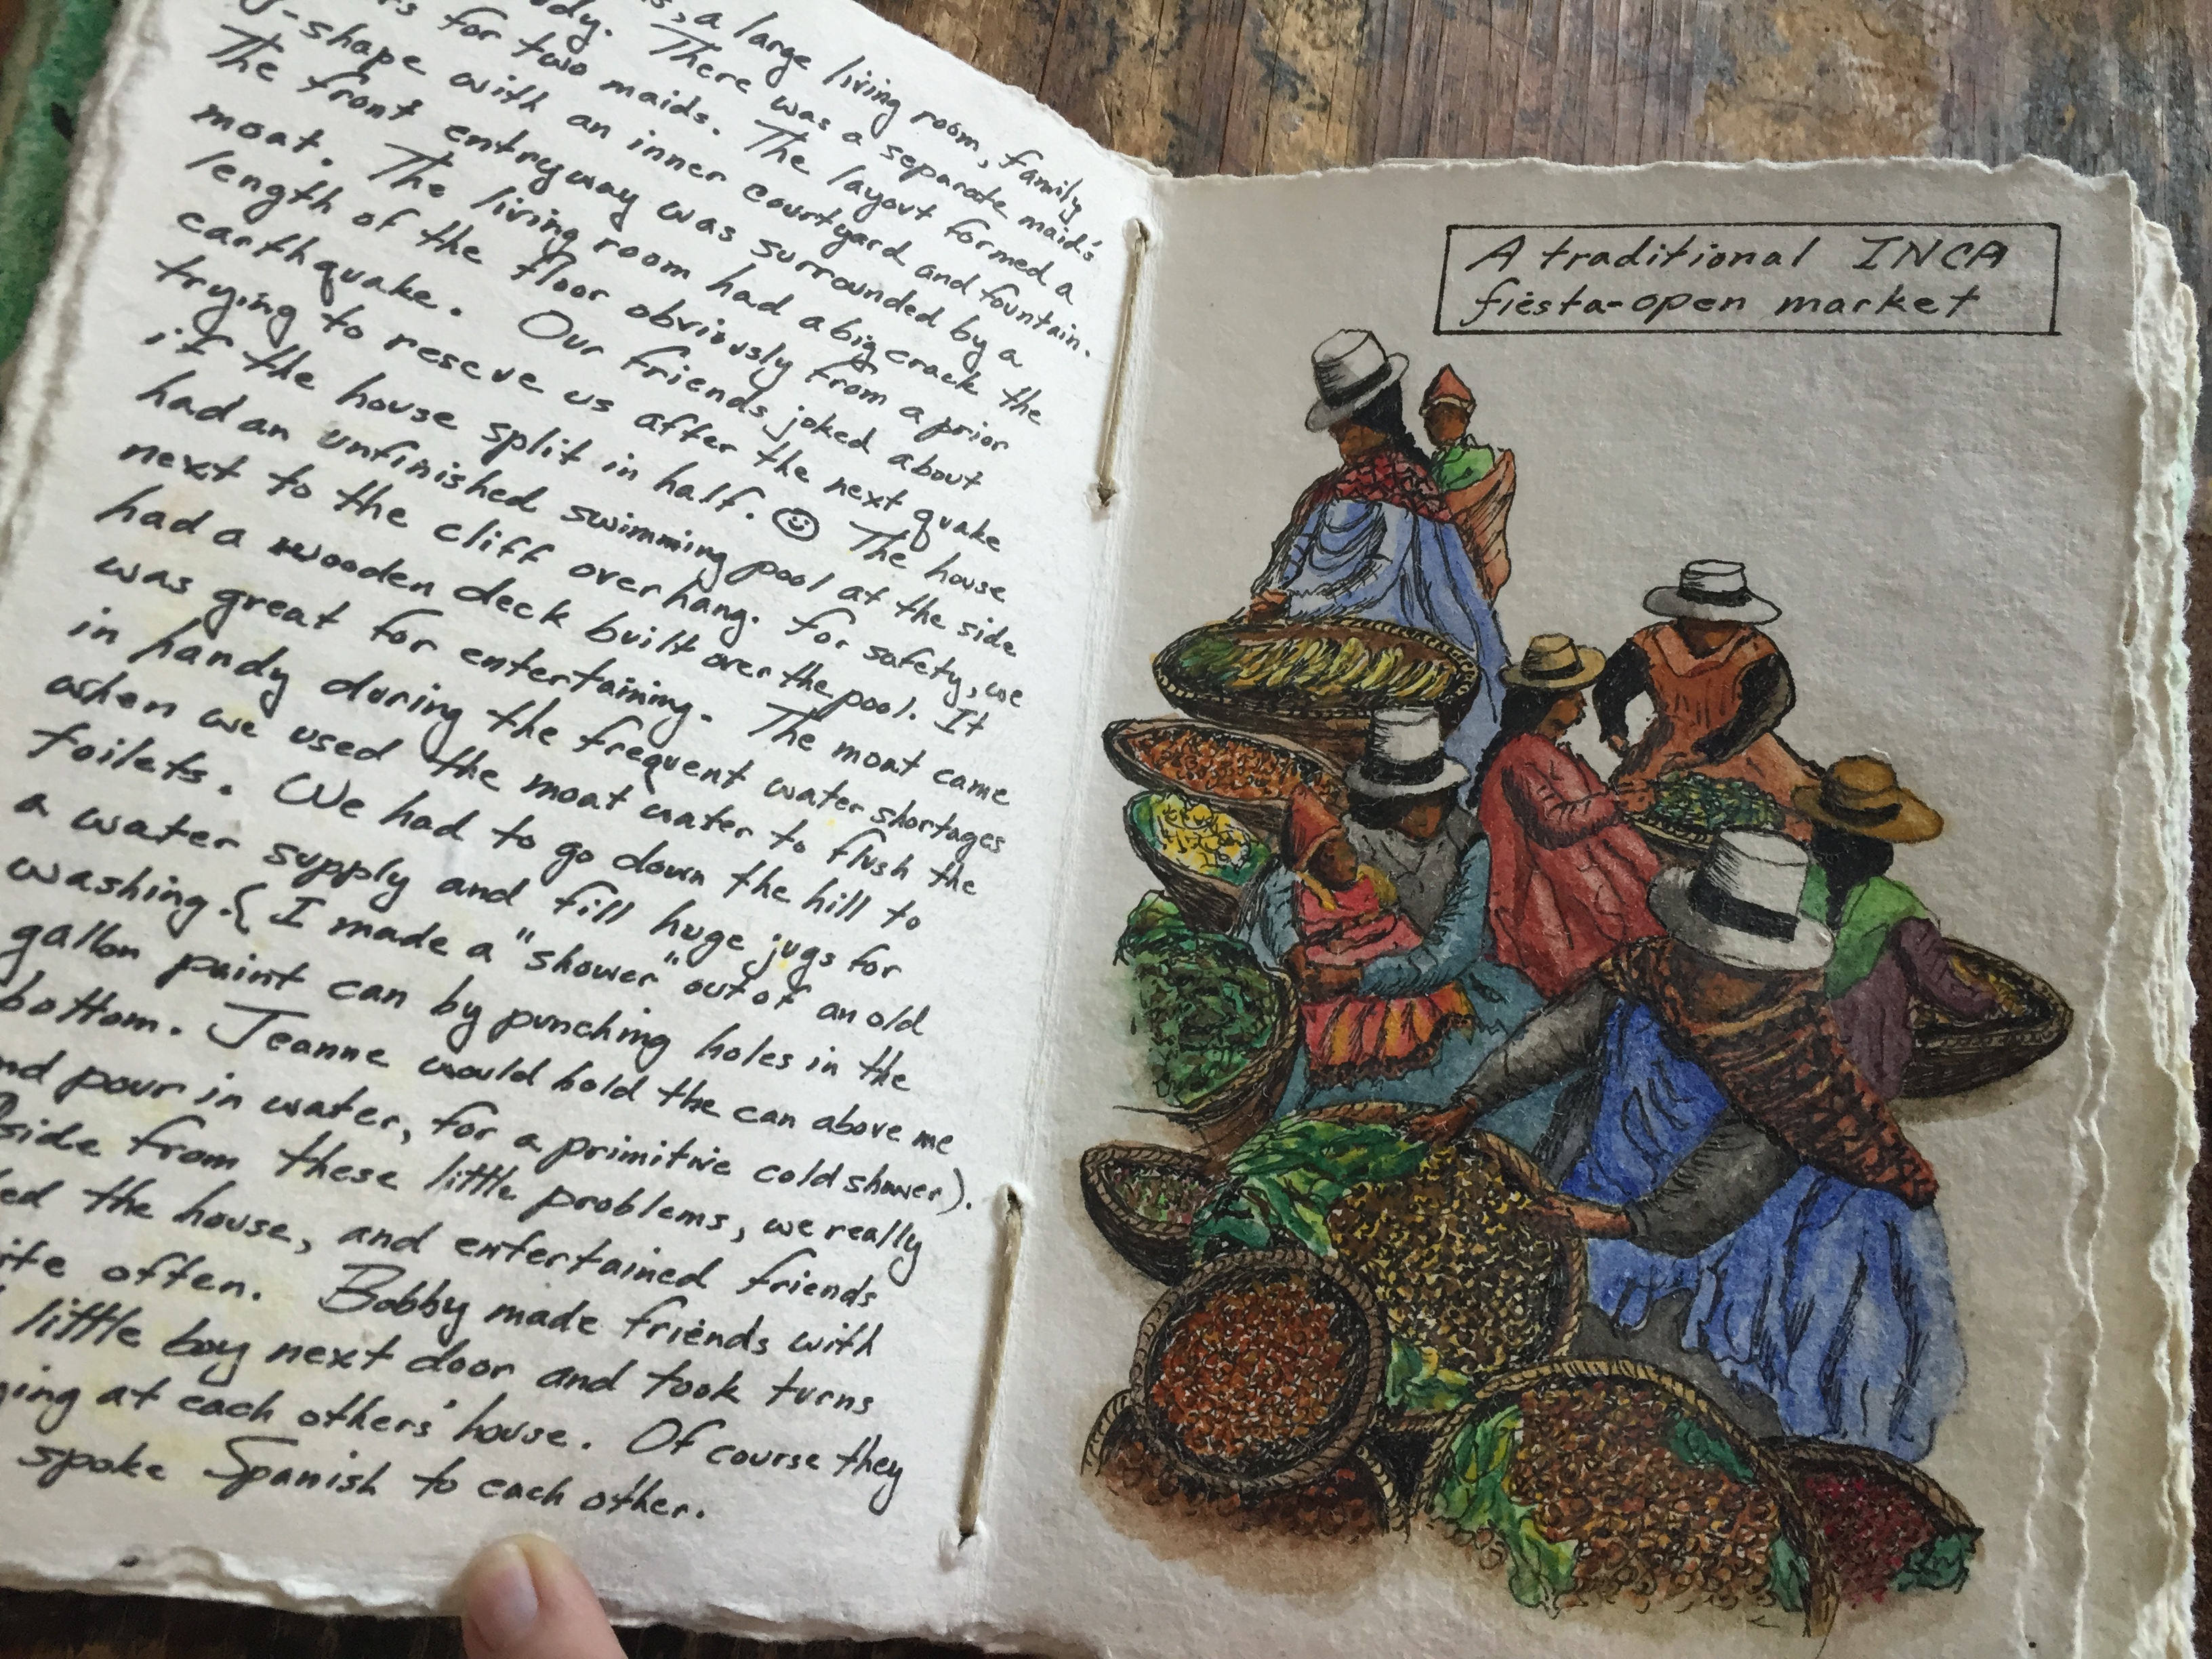 a large living room, family
There was a separate maid's
for two maids. The layout formed a
-shape with an inner courtyard and fountain.
The front entryway was surrounded by a
moat. The living room had a big crack the
length of the floor obviously from a prior
earthquake. Our friends joked about
trying to rescue us after the next quake
if the house split in half. ☺ The house
had an unfinished swimming pool at the side
next to the cliff overhang. For safety, we
had a wooden deck built over the pool. It
was great for entertaining. The moat came
in handy during the frequent water shortages
when we used the moat water to flush the
toilets. We had to go down the hill to
a water supply and fill huge jugs for
washing. (I made a "shower" out of an old
gallon paint can by punching holes in the
bottom. Jeanne would hold the can above me
nd pour in water, for a primitive cold shower).
side from these little problems, we really
ed the house, and entertained friends
ite often. Bobby made friends with
little boy next door and took turns
ing at each others' house. Of course they
spoke Spanish to each other.
A traditional INCA
fiesta-open market